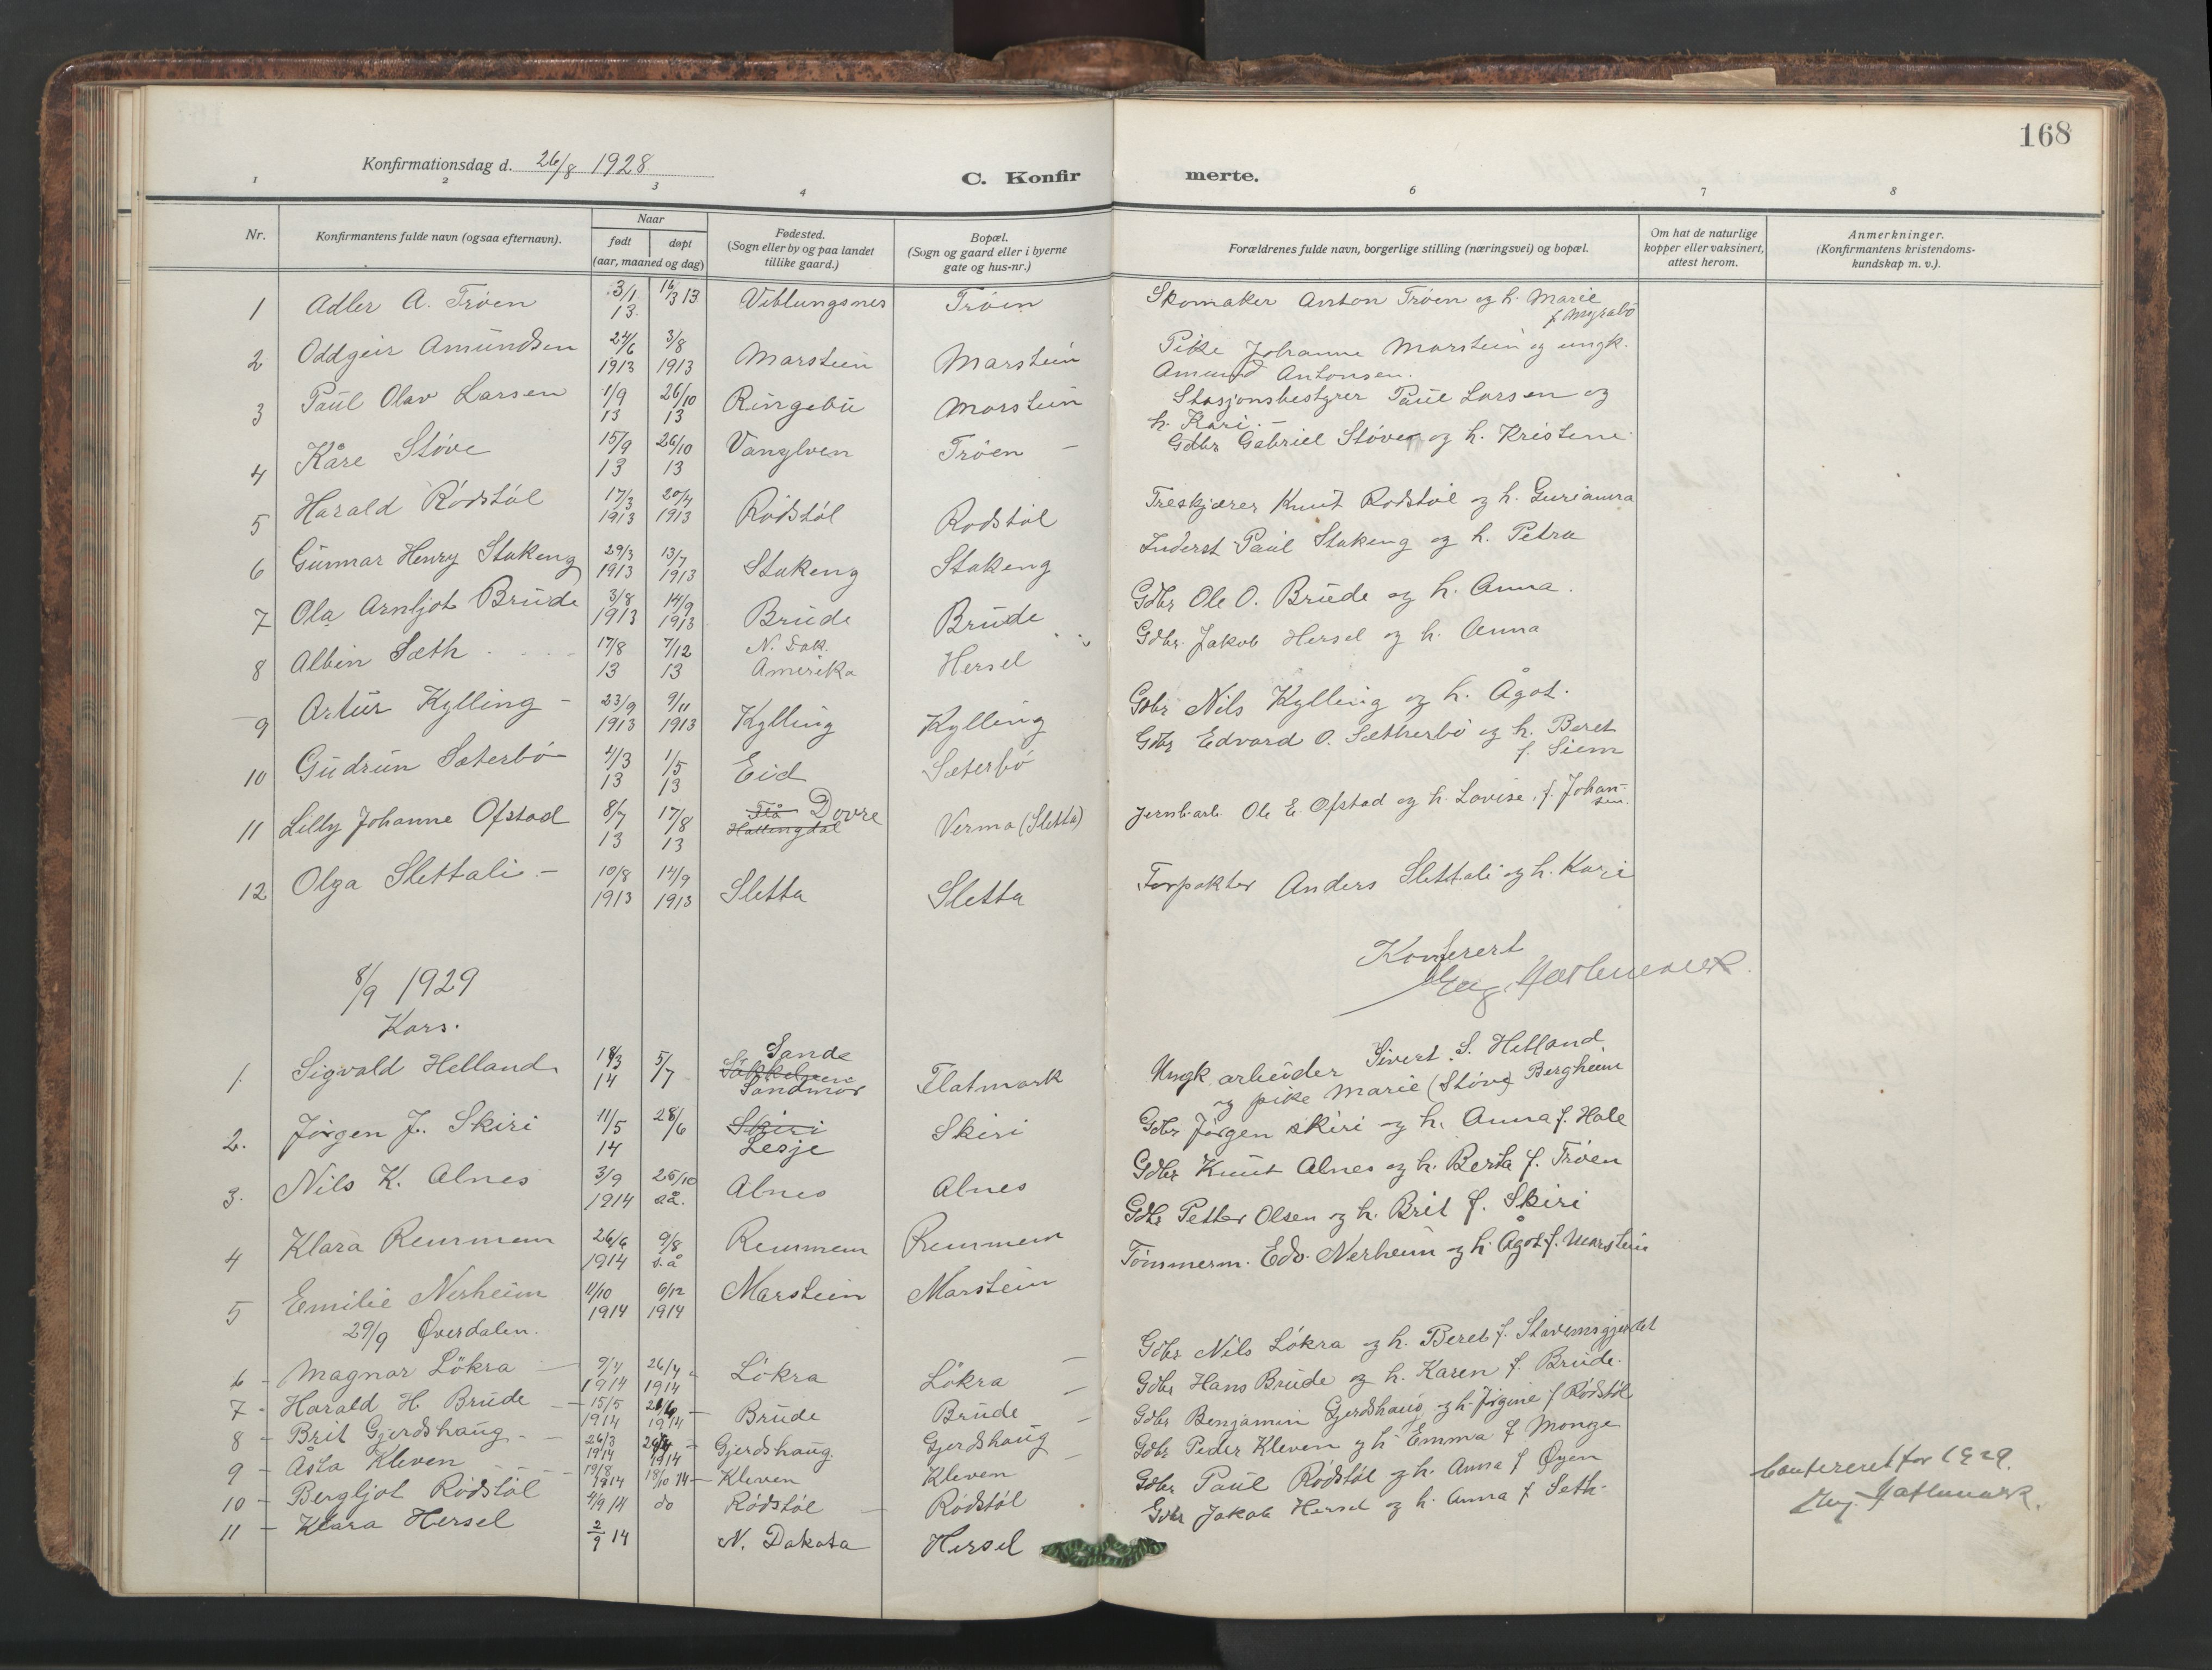 168
Konfirmationsdag d. 26/8 1928
C. Konfirmerte.
1 2 3 4 6 7 8
Nr.
Konfirmantens fulde navn (ogsaa efternavn).
Naar
født døpt
(aar, maaned og dag)
Fødested.
(Sogn eller by og paa landet
tillike gaard.)
Bopæl.
(Sogn og gaard eller i byerne
gate og hus-nr.)
Forældrenes fulde navn, borgerlige stilling (næringsvei) og bopæl.
Om hat de naturlige
kopper eller vaksinert,
attest herom.
Anmerkninger.
(Konfirmantens kristendoms-
kundskap m. v.).
1 Adler A. Trøen 3/1 13. 16/3 13 Veblungsnes Trøen Skomaker Anton Trøen og h. Marie
f. Myrabø
2 Oddgeir Amundsen 24/6 1913 3/8 1913 Marstein Marstein Pike Johanne Marstein og ungk.
Amund Antonsen.
3 Paul Olav Larsen 1/9 13 26/10 13 Ringebu Marstein Stasjonsbestyrer Paul Larsen og
h. Kari. –
4 Kåre Støve 15/9 13 26/10 13 Vanglven Trøen – Gdbr Gabriel Støve og h. Kristine
5 Harald Rödstöl 17/3 1913 20/4 1913 Rödstöl Rodstöl Treskjærer Knut Rodstöl og h. Gurianna
6 Gunnar Henry Stakeng 29/3 1913 13/7 1913 Stakeng Stakeng Inderst Paul Stakeng og h. Petra
7 Ola Arnljot Brude 3/8 1913 14/9 1913 Brude Brude Gdbr Ole O. Brude og h. Anna.
8 Albin Sæth 17/8 13 7/12 13 N. Dak. Amerika Hersel Gdbr. Jakob Hersel og h. Anna
9 Artur Kylling – 23/9 1913 9/11 1913 Kylling Kylling Gdbr Nils Kylling og h. Ågot.
10 Gudrun Sæterbö 4/3 13 1/5 13 Eid Sæterbö Gdbr Edvard O. Sætherbö og h. Beret
f. Siem
11 Lilly Johanne Ofstad 8/7 13 17/8 13 Flå Hallingdal Dovre Verma (Sletta) Jernb.arb. Ole E Ofstad og h. Lovise, f. Johan-
sen.
12 Olga Slettali – 10/8 1913 14/9 1913 Sletta Sletta Forpakter Anders Slettali og h. Kari
Konferert
8/9 1929
Kors.
1. Sigvald Helland 18/3 14 5/7 Sande Sandmör Flatmark Ungk. arbeider Sivert S. Helland
og pike Marie (Støve) Bergheim
2. Jörgen J. Skiri 11/5 14 28/6 Skiri Lesje Skiri Gdbr Jörgen Skiri og h. Anna f. Hole
3. Nils K. Alnes 3/9 1914 25/10 s.å. Alnes Alnes Gdbr Knut Alnes og h. Berta f. Trøen
4 Klara Remmem 26/6 1914 9/8 s.å Remmem Remmem Gdbr Petter Olsen og h. Brit f. Skiri
5 Emilie Nerheim 11/10 1914 6/12 1914 Marstein Marstein Tømmerm. Edv. Nerheim og h. Ågot f. Marstein
29/9 Øverdalen.
6 – Magnar Lökra – 9/4 1914 26/4 1914 Lökra Lökra – Gdbr Nils Lökra og h. Beret f. Stavemsgjerdet
7 – Harald H. Brude – 15/5 1914 21/6 1914 – Brude Brude – Gdbr Hans Brude og h. Karen f. Brude.
8 – Brit Gjerdshaug – 26/3 1914 26/4 1914 – Gjerdshaug Gjerdshaug – Gdbr Benjamin Gjerdshaug og h. Jörgine f Rödstöl
9 – Åsta Kleven – 19/8 1914 18/10 14 – Kleven Kleven – Gdbr Peder Kleven og h Emma f Monge
10 – Bergljot Rödstöl 4/9 14 do Rödstöl – Rödstöl Gdbr Paul Rödstöl og h. Anna f Øyen
11 – Klara Hersel 2/9 14 N. Dakota Hersel Gdbr Jakob Hersel og h. Anna f Seth.
Confereret for 1929.